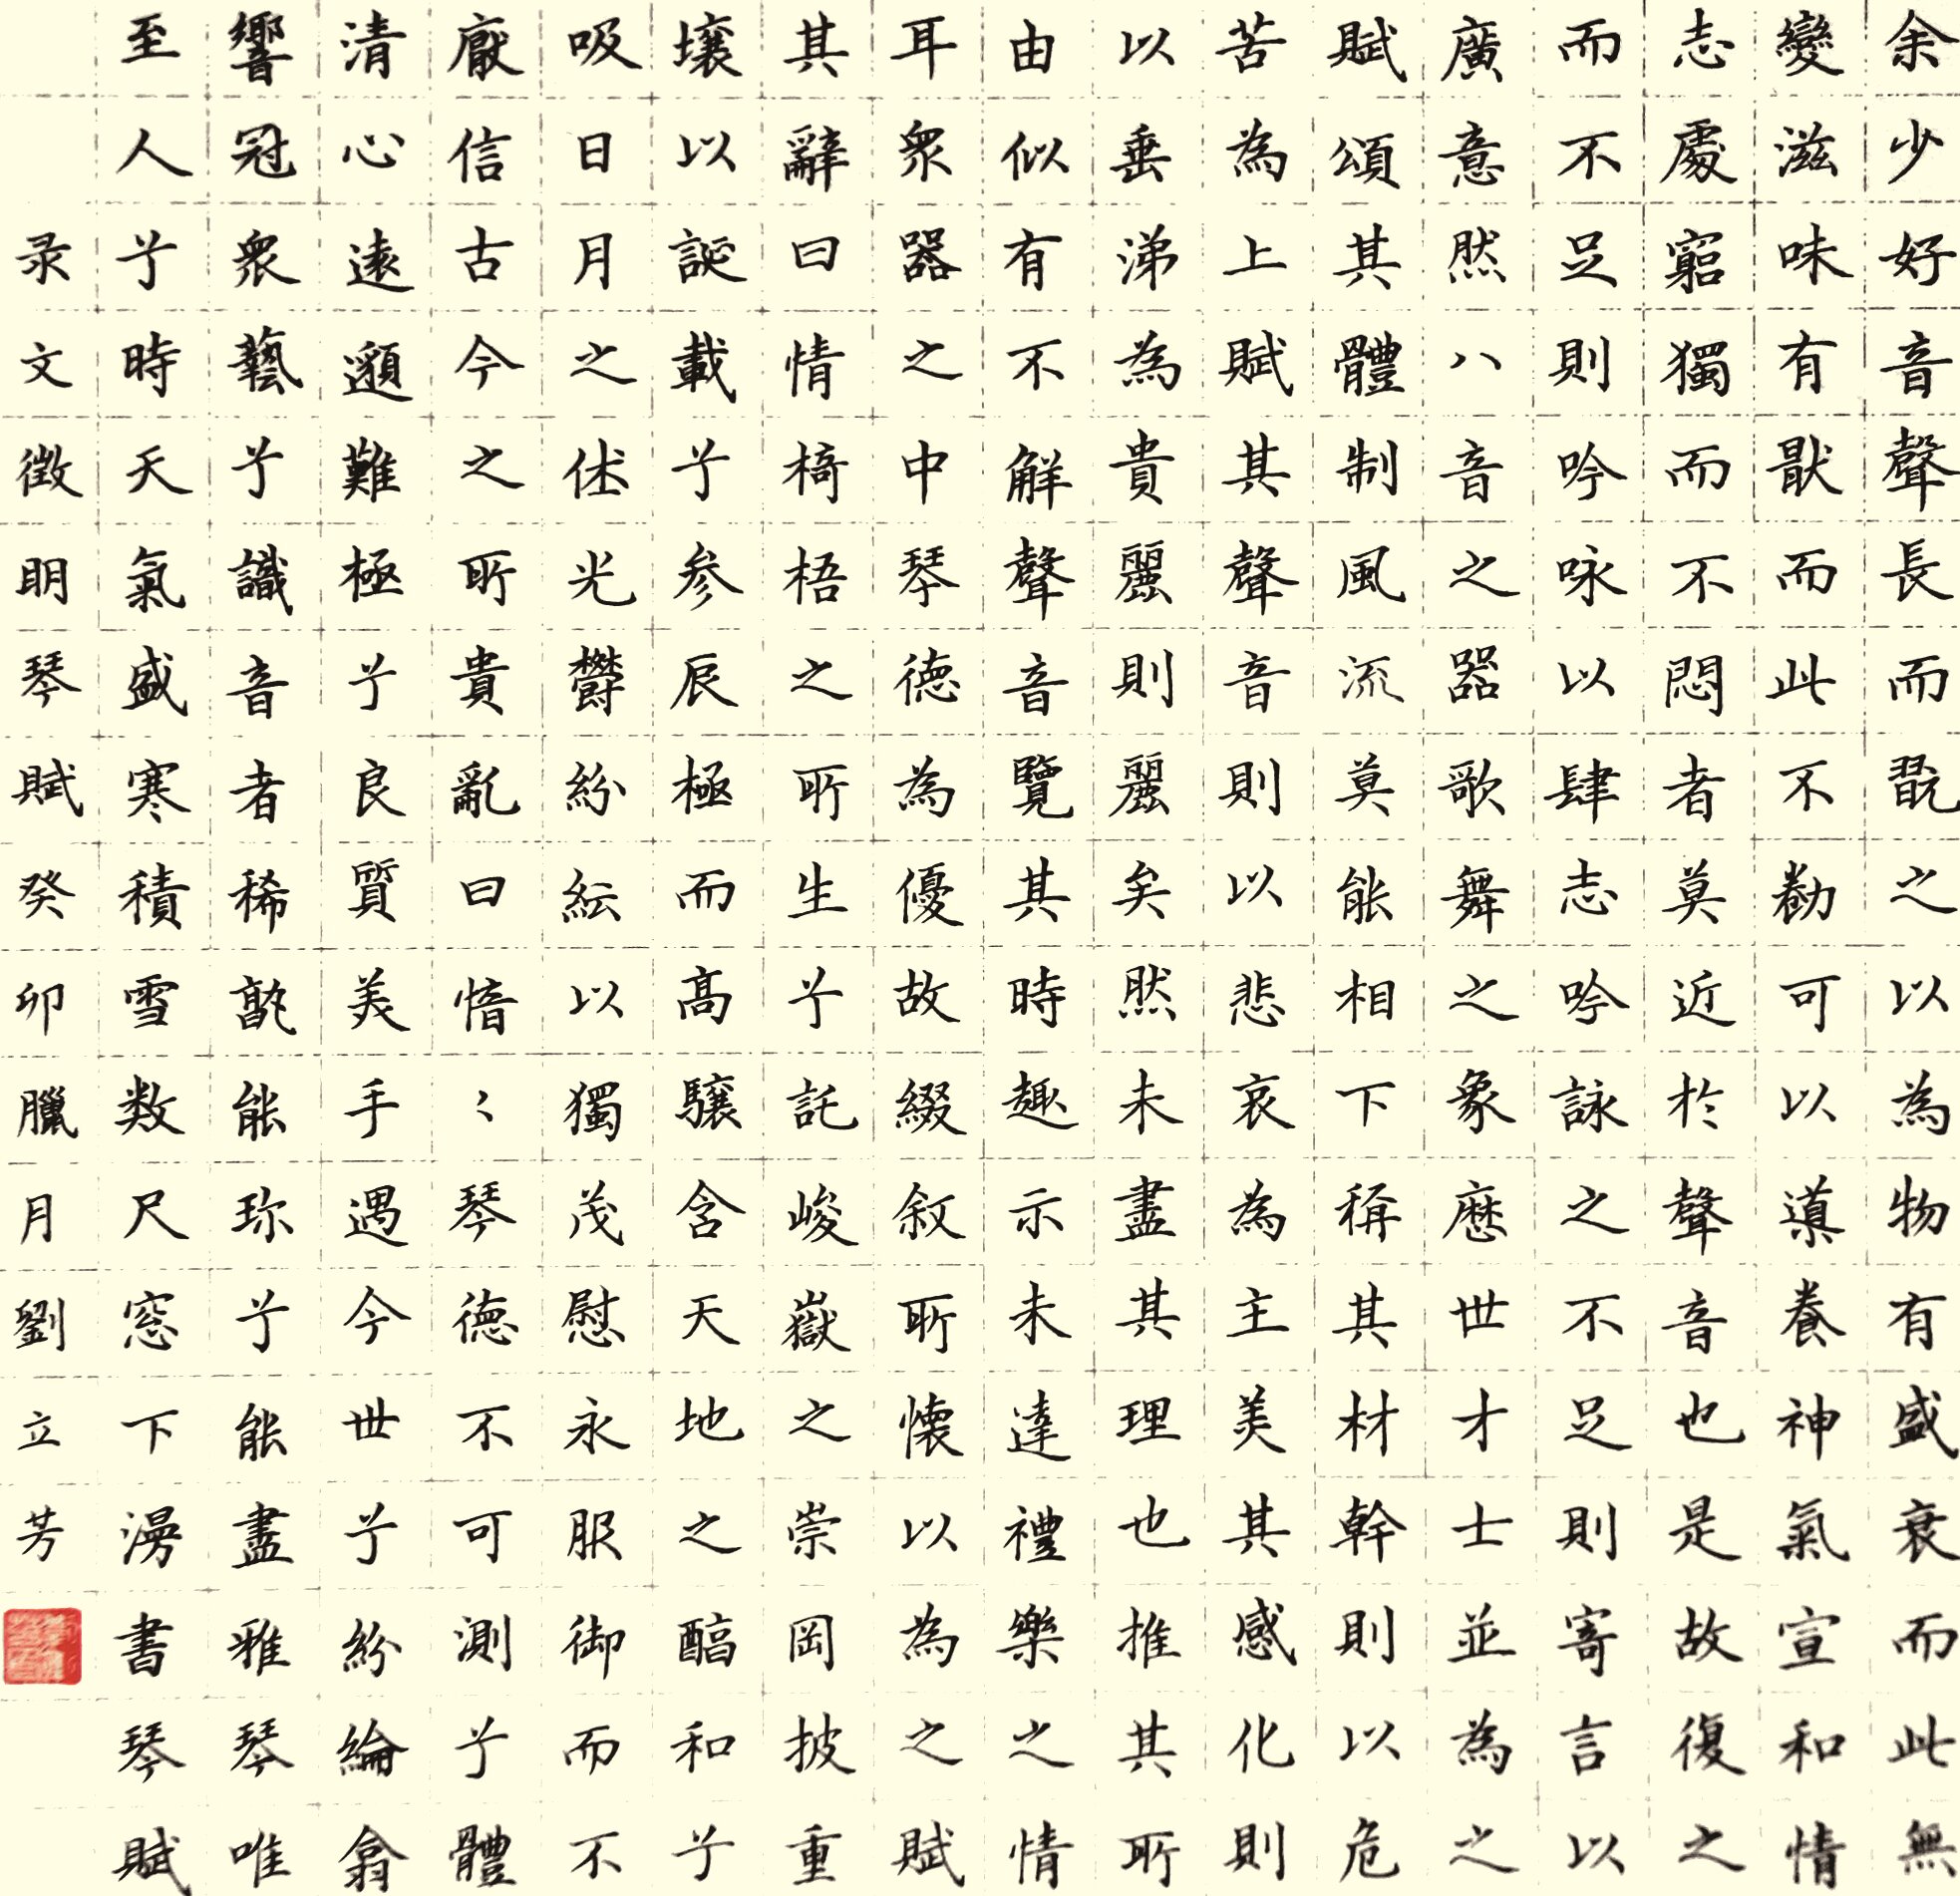 余少好音聲長而翫之以為物有盛衰而此無
變滋味有猒而此不勌可以導養神氣宣和情
志處窮獨而不悶者莫近於聲音也是故復之
而不足則吟咏以肆志吟詠之不足則寄言以
廣意然八音之器歌舞之象歷世才士並為之
賦頌其體制風流莫能相下稱其材幹則以危
苦為上賦其聲音則以悲哀為主美其感化則
以垂涕為貴麗則麗矣然未盡其理也推其所
由似有不解聲音覽其時趣示未達禮樂之情
耳眾器之中琴德為優故綴敘所懷以為之賦
其辭曰情椅梧之所生兮託峻嶽之崇岡披重
壤以誕載兮參辰極而高驤含天地之醇和兮
吸日月之休光鬱紛紜以獨茂慰永服御而不
厭信古今之所貴亂曰愔〻琴德不可測兮體
清心遠邈難極兮良質美手遇今世兮紛綸翕
響冠眾藝兮識音者稀孰能珍兮能盡雅琴唯
至人兮時天氣盛寒積雪数尺窓下漫書琴賦
录文徵明琴賦癸卯臘月劉立芳